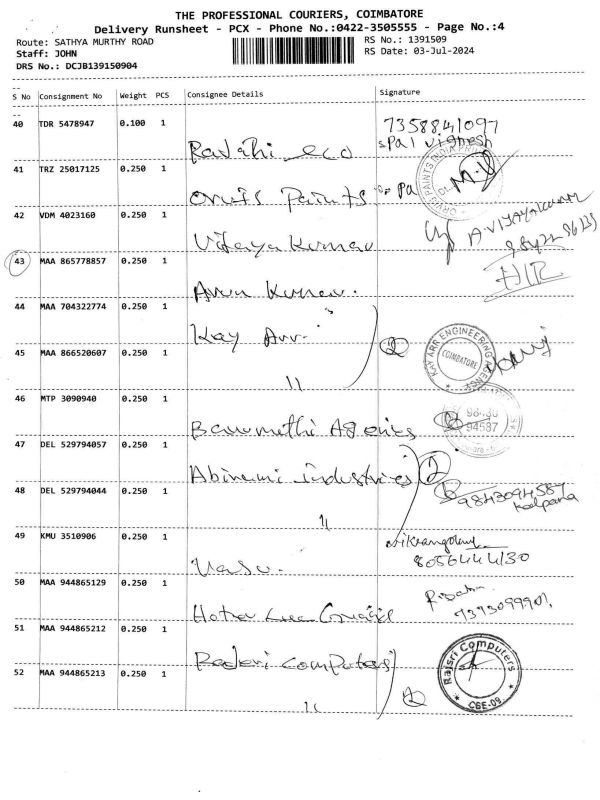 THE PROFESSIONAL COURIERS, COIMBATORE
Delivery Runsheet - PCX - Phone No.:0422-3505555 - Page No.:4
Route: SATHYA MURTHY ROAD
RS No.: 1391509
Staff: JOHN
RS Date: 03-Jul-2024
DRS No.: DCJB139150904
S No Consignment No Weight PCS Consignee Details Signature
40 TDR 5478947 0.100 1
7358841097
41 TRZ 25017125 0.250 1 Orvis Paints
ORVIS PAINTS INDIA
42 VDM 4023160 0.250 1 Vijaya Kumar A. VIJAYAKUMAR
43 MAA 865778857 0.250 1 Arun Kumar.
44 MAA 704322774 0.250 1 Kay Arr. 2
KAY ARR ENGINEERING AGENCY
COIMBATORE
45 MAA 866520607 0.250 1 11
46 MTP 3090940 0.250 1 Agencies
94587
47 DEL 529794057 0.250 1 Abirami industries 2
48 DEL 529794044 0.250 1 11 9843094587
kalpana
49 KMU 3510906 0.250 1 Vasu.
8056444130
50 MAA 944865129 0.250 1
7373099901
51 MAA 944865212 0.250 1 Computers
Rajsri Computers
CBE-09
52 MAA 944865213 0.250 1 11 2